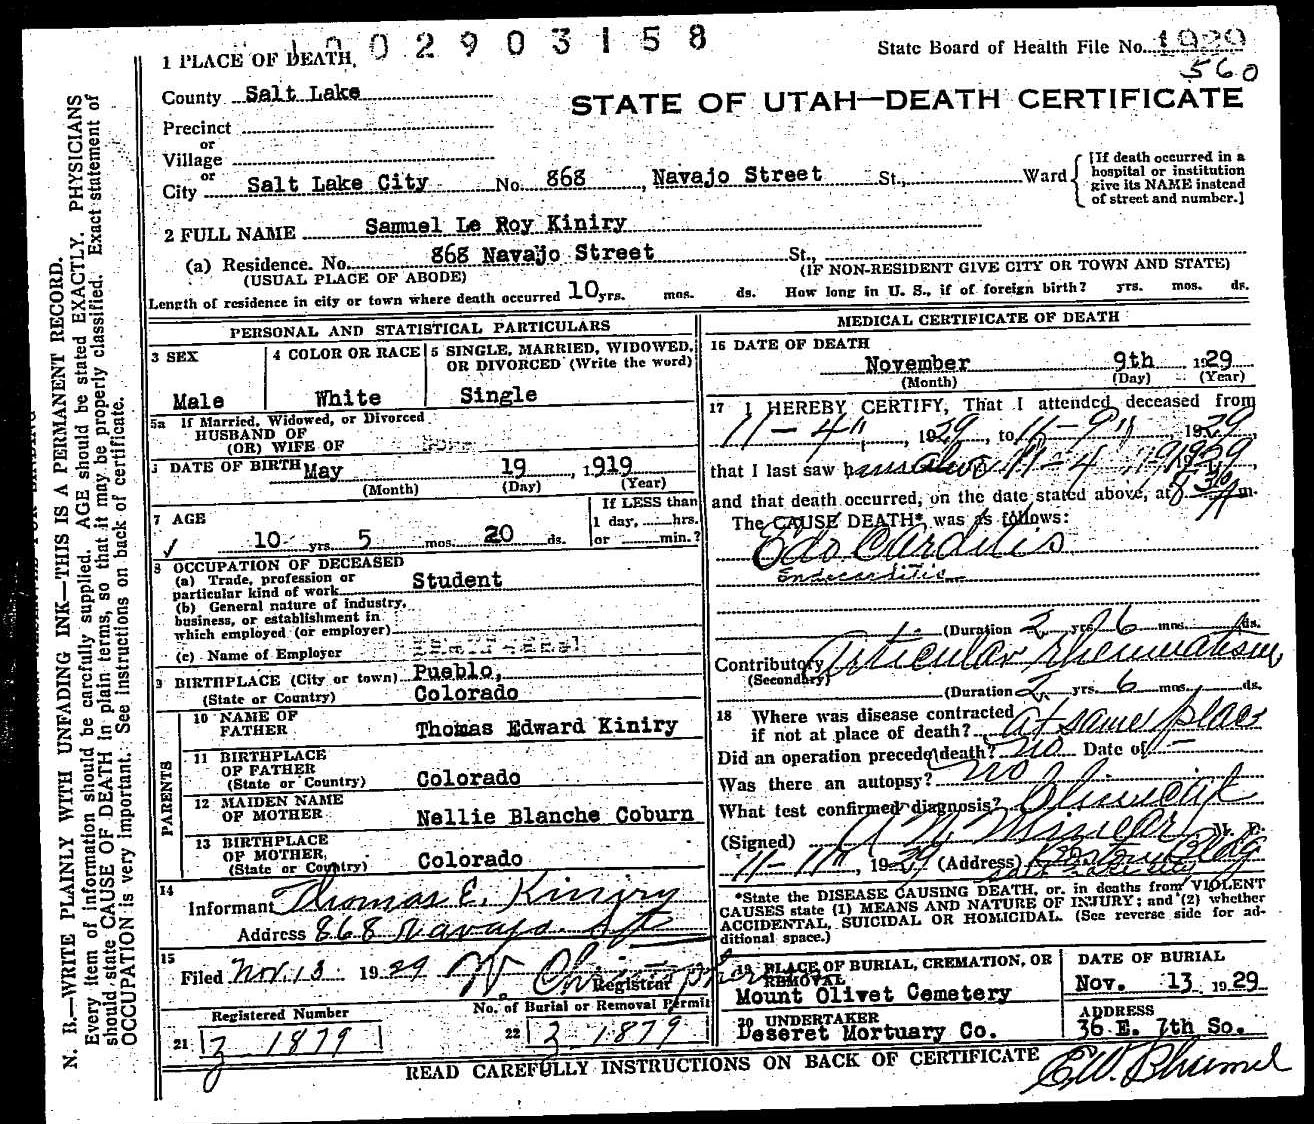 1 0 0 2 9 0 3 1 5 8
State Board of Health File No. 1929
560
1 PLACE OF DEATH,
County Salt Lake
STATE OF UTAH—DEATH CERTIFICATE
Precinct
or
Village
or
City Salt Lake City No. 868, Navajo Street St., Ward
[If death occurred in a
hospital or institution
give its NAME instead
of street and number.]
2 FULL NAME Samuel Le Roy Kiniry
(a) Residence. No. 868 Navajo Street St.,
(USUAL PLACE OF ABODE) (IF NON-RESIDENT GIVE CITY OR TOWN AND STATE)
Length of residence in city or town where death occurred 10 yrs. mos. ds. How long in U. S., if of foreign birth? yrs. mos. ds.
N. B.—WRITE PLAINLY WITH UNFADING INK—THIS IS A PERMANENT RECORD.
Every item of information should be carefully supplied. AGE should be stated EXACTLY. PHYSICIANS
should state CAUSE OF DEATH in plain terms, so that it may be properly classified. Exact statement of
OCCUPATION is very important. See instructions on back of certificate.
PERSONAL AND STATISTICAL PARTICULARS
3 SEX
Male
4 COLOR OR RACE
White
5 SINGLE, MARRIED, WIDOWED,
OR DIVORCED (Write the word)
Single
5a If Married, Widowed, or Divorced
HUSBAND OF
(OR) WIFE OF
DATE OF BIRTH May 19, 1919
(Month) (Day) (Year)
7 AGE
10 yrs. 5 mos. 20 ds.
If LESS than
1 day, hrs.
or min.?
8 OCCUPATION OF DECEASED
(a) Trade, profession or
particular kind of work Student
(b) General nature of industry,
business, or establishment in
which employed (or employer)
(c) Name of Employer
9 BIRTHPLACE (City or town) Pueblo,
(State or Country) Colorado
PARENTS
10 NAME OF
FATHER Thomas Edward Kiniry
11 BIRTHPLACE
OF FATHER
(State or Country) Colorado
12 MAIDEN NAME
OF MOTHER Nellie Blanche Coburn
13 BIRTHPLACE
OF MOTHER,
(State or Country) Colorado
14
Informant Thomas E. Kiniry
Address 868 Navajo St
15
Filed Nov. 13 1929 W. Christopher
Registrar
Registered Number
21 Z 1879
No. of Burial or Removal Permit
22 Z 1879
MEDICAL CERTIFICATE OF DEATH
16 DATE OF DEATH
November 9th 1929
(Month) (Day) (Year)
17 I HEREBY CERTIFY, That I attended deceased from
11-4", 1929, to 11-9" 1929
that I last saw him alive 11-4 1929,
and that death occurred, on the date stated above, at 8 30 A m.
The CAUSE DEATH*, was as follows:
Edo Carditis
Endocarditis
(Duration 2 yrs. 6 mos. ds.
Contributory Articular rheumatism
(Secondary)
(Duration 2 yrs. 6 mos. ds.
18 Where was disease contracted
if not at place of death? at same place
Did an operation precede death? no Date of —
Was there an autopsy? no
What test confirmed diagnosis? Clinical
(Signed) M. D.
11-11, 1929 (Address) Bldg
*State the DISEASE CAUSING DEATH, or, in deaths from VIOLENT
CAUSES state (1) MEANS AND NATURE OF INJURY; and (2) whether
ACCIDENTAL, SUICIDAL OR HOMICIDAL. (See reverse side for ad-
ditional space.)
19 PLACE OF BURIAL, CREMATION, OR
REMOVAL
Mount Olivet Cemetery
DATE OF BURIAL
Nov. 13 1929
20 UNDERTAKER
Deseret Mortuary Co.
ADDRESS
36 E. 7th So.
READ CAREFULLY INSTRUCTIONS ON BACK OF CERTIFICATE